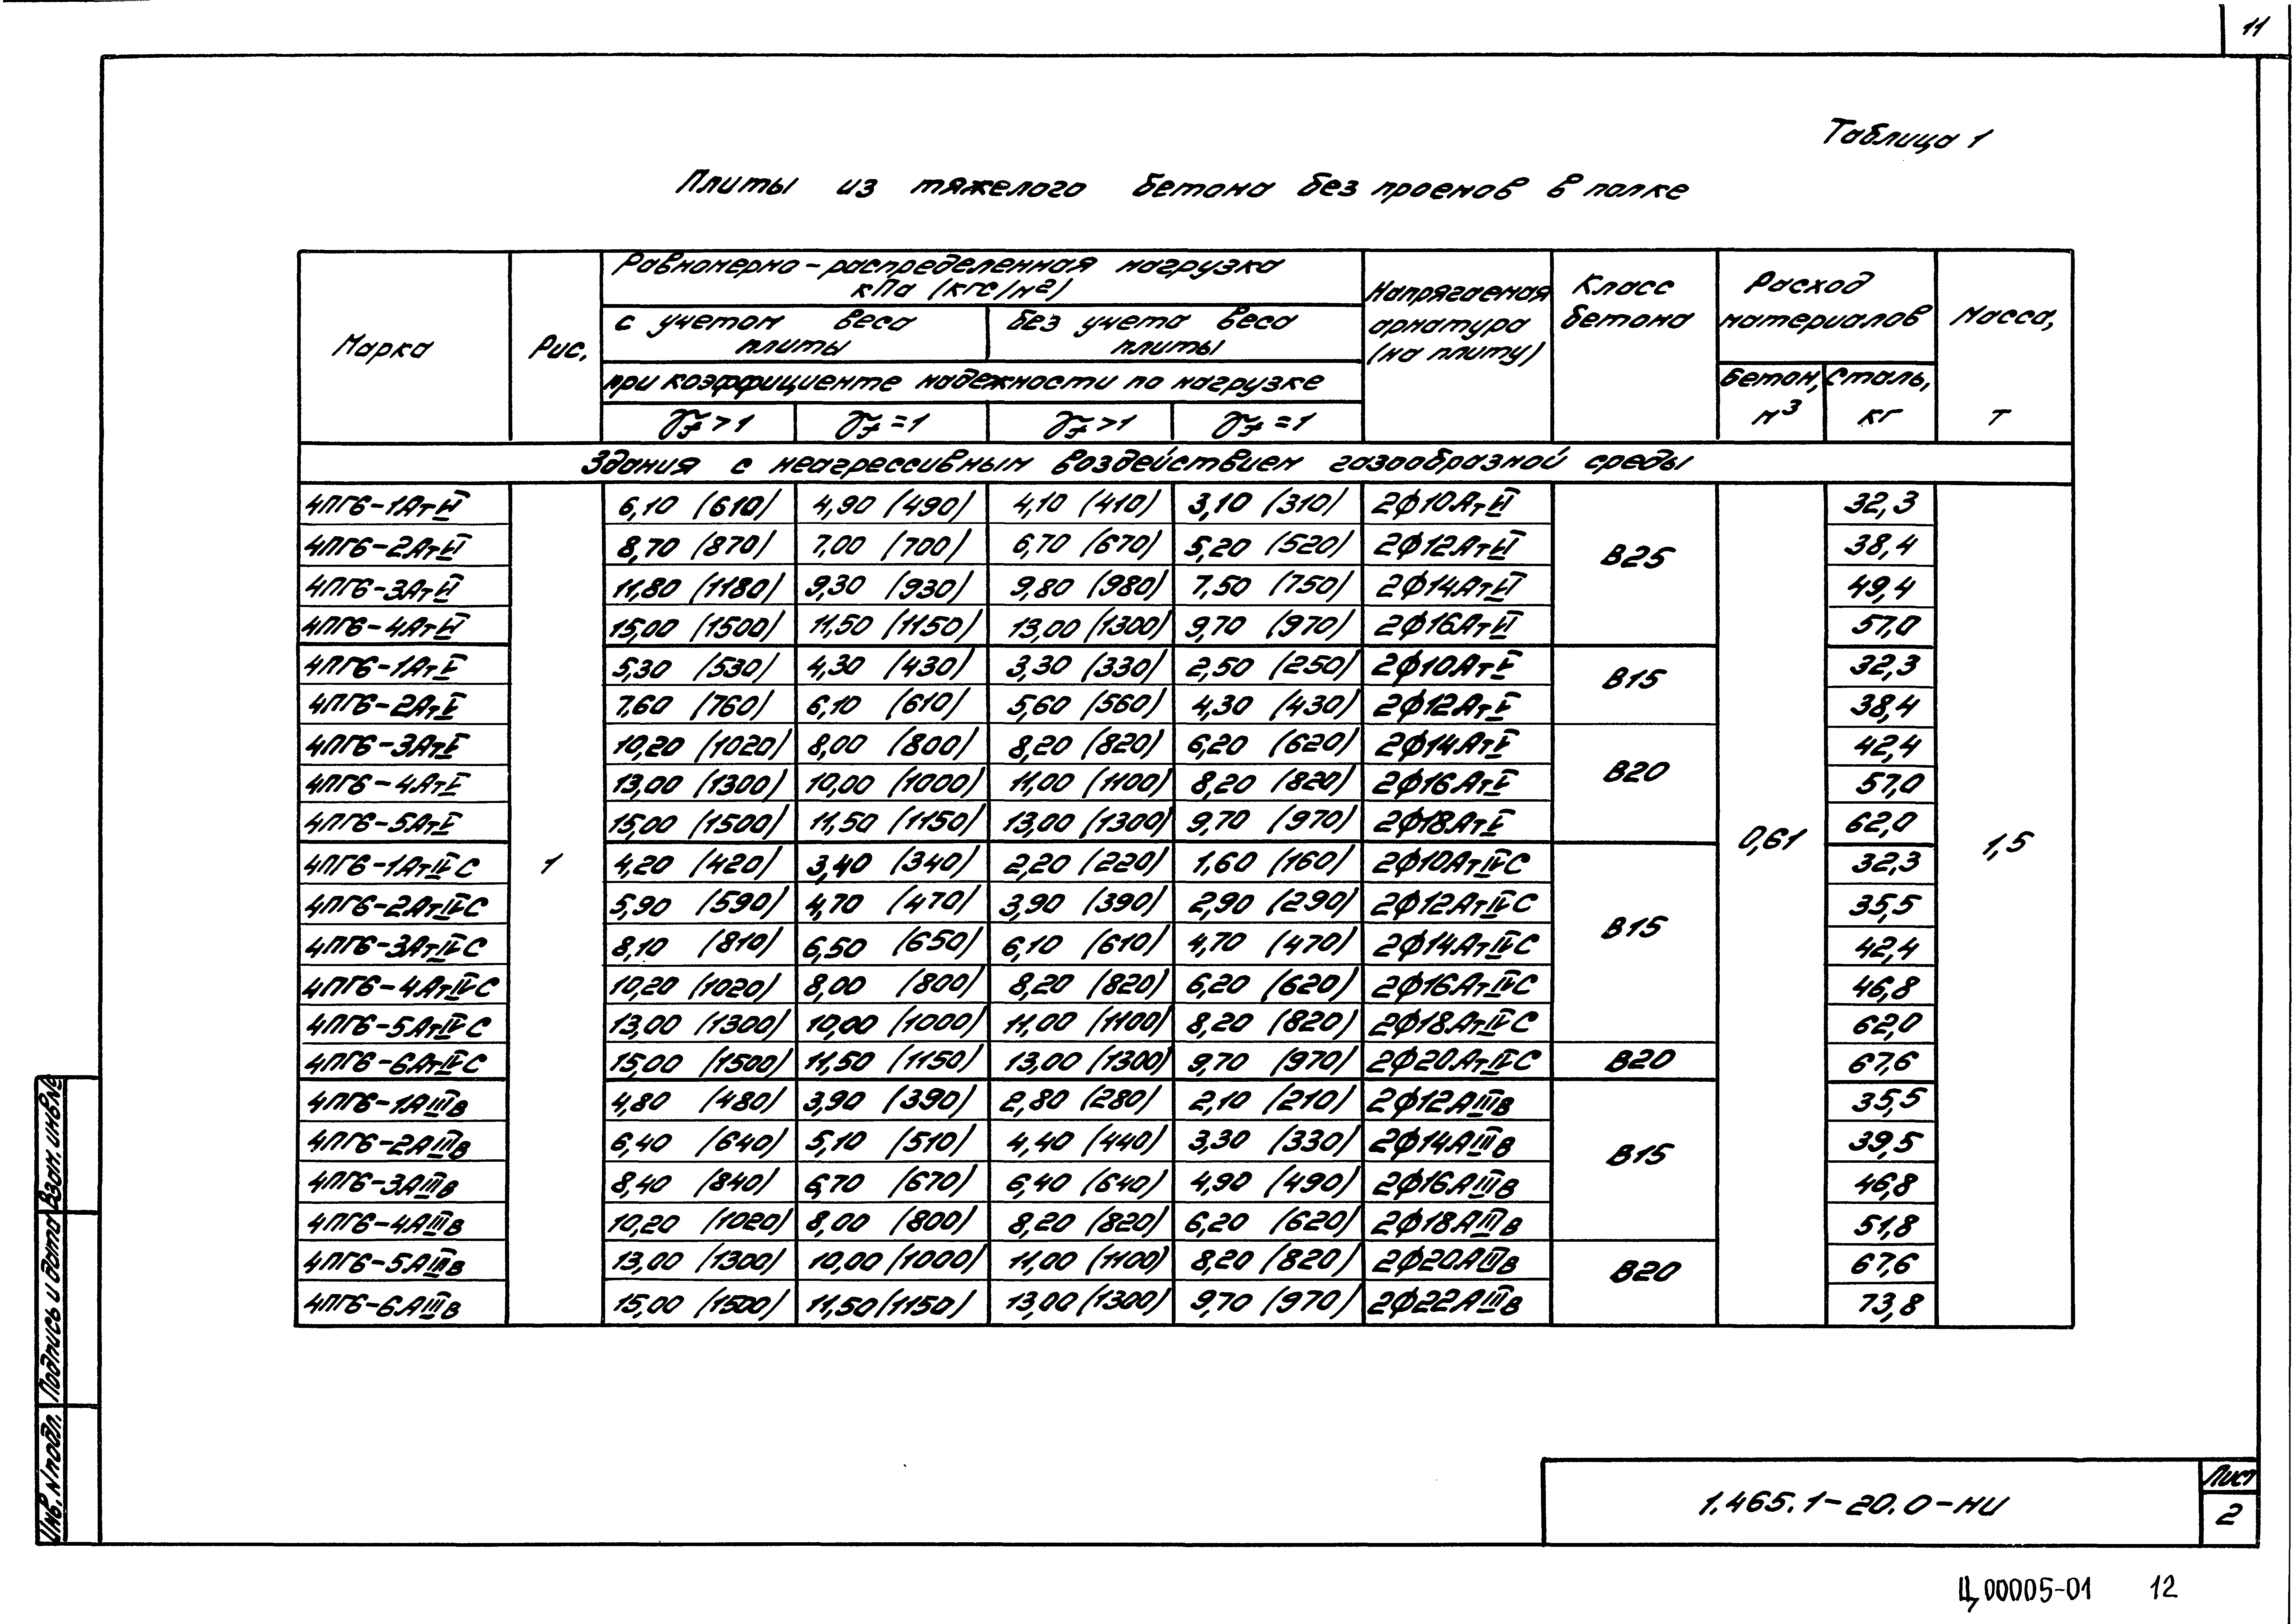 11
Таблица 1
Плиты из тяжелого бетона без проемов в полке
Марка
Рис.
Равномерно-распределенная нагрузка
кПа (кгс/м²)
с учетом веса
плиты
без учета веса
плиты
при коэффициенте надежности по нагрузке
γf >1 γf =1 γf >1 γf =1
Напрягаемая
арматура
(на плиту)
Класс
бетона
Расход
материалов
Бетон, м³
Сталь, кг
Масса, т
Здания с неагрессивным воздействием газообразной среды
4ПГ6-1АтVI 6,10 (610) 4,90 (490) 4,10 (410) 3,10 (310) 2ф10АтVI 32,3
4ПГ6-2АтVI 8,70 (870) 7,00 (700) 6,70 (670) 5,20 (520) 2ф12АтVI В25 38,4
4ПГ6-3АтVI 11,80 (1180) 9,30 (930) 9,80 (980) 7,50 (750) 2ф14АтVI 49,4
4ПГ6-4АтVI 15,00 (1500) 11,50 (1150) 13,00 (1300) 9,70 (970) 2ф16АтVI 57,0
4ПГ6-1АтV 5,30 (530) 4,30 (430) 3,30 (330) 2,50 (250) 2ф10АтV В15 32,3
4ПГ6-2АтV 7,60 (760) 6,10 (610) 5,60 (560) 4,30 (430) 2ф12АтV 38,4
4ПГ6-3АтV 10,20 (1020) 8,00 (800) 8,20 (820) 6,20 (620) 2ф14АтV 42,4
4ПГ6-4АтV 13,00 (1300) 10,00 (1000) 11,00 (1100) 8,20 (820) 2ф16АтV В20 57,0
4ПГ6-5АтV 15,00 (1500) 11,50 (1150) 13,00 (1300) 9,70 (970) 2ф18АтV 0,61 62,0 1,5
4ПГ6-1АтIVС 1 4,20 (420) 3,40 (340) 2,20 (220) 1,60 (160) 2ф10АтIVС 32,3
4ПГ6-2АтIVС 5,90 (590) 4,70 (470) 3,90 (390) 2,90 (290) 2ф12АтIVС В15 35,5
4ПГ6-3АтIVС 8,10 (810) 6,50 (650) 6,10 (610) 4,70 (470) 2ф14АтIVС 42,4
4ПГ6-4АтIVС 10,20 (1020) 8,00 (800) 8,20 (820) 6,20 (620) 2ф16АтIVС 46,8
4ПГ6-5АтIVС 13,00 (1300) 10,00 (1000) 11,00 (1100) 8,20 (820) 2ф18АтIVС 62,0
4ПГ6-6АтIVС 15,00 (1500) 11,50 (1150) 13,00 (1300) 9,70 (970) 2ф20АтIVС В20 67,6
4ПГ6-1АIIIв 4,80 (480) 3,90 (390) 2,80 (280) 2,10 (210) 2ф12АIIIв 35,5
4ПГ6-2АIIIв 6,40 (640) 5,10 (510) 4,40 (440) 3,30 (330) 2ф14АIIIв В15 39,5
4ПГ6-3АIIIв 8,40 (840) 6,70 (670) 6,40 (640) 4,90 (490) 2ф16АIIIв 46,8
4ПГ6-4АIIIв 10,20 (1020) 8,00 (800) 8,20 (820) 6,20 (620) 2ф18АIIIв 51,8
4ПГ6-5АIIIв 13,00 (1300) 10,00 (1000) 11,00 (1100) 8,20 (820) 2ф20АIIIв В20 67,6
4ПГ6-6АIIIв 15,00 (1500) 11,50 (1150) 13,00 (1300) 9,70 (970) 2ф22АIIIв 73,8
Инв. N подл.
Подпись и дата
Взам. инв.№
1.465.1-20.0-НИ
Лист
2
Ц00005-01 12